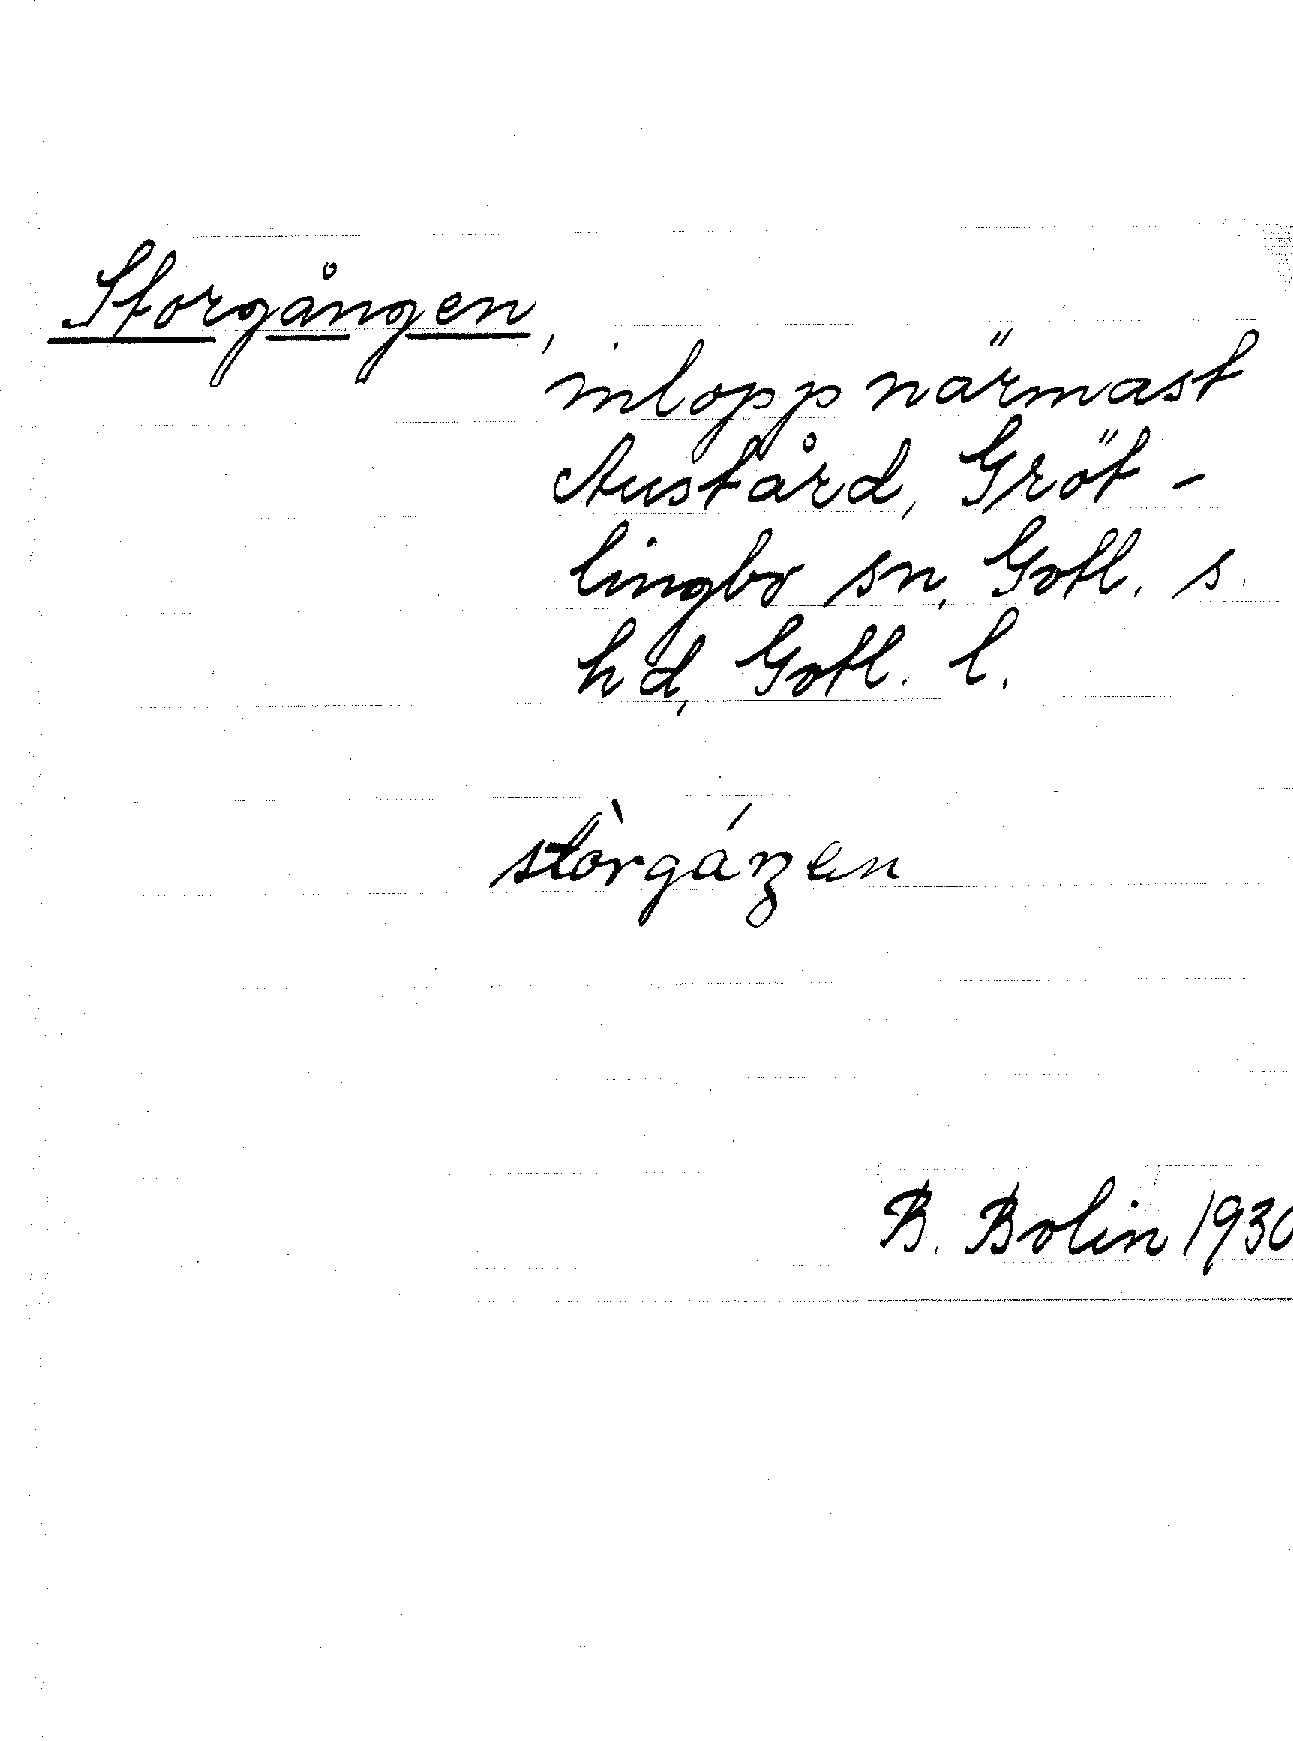 Storgången,
inlopp närmast
Austård, Gröt-
lingbo sn, Gotl. s.
hd, Gotl. l.
stòrgáŋen
B. Bolin 1930